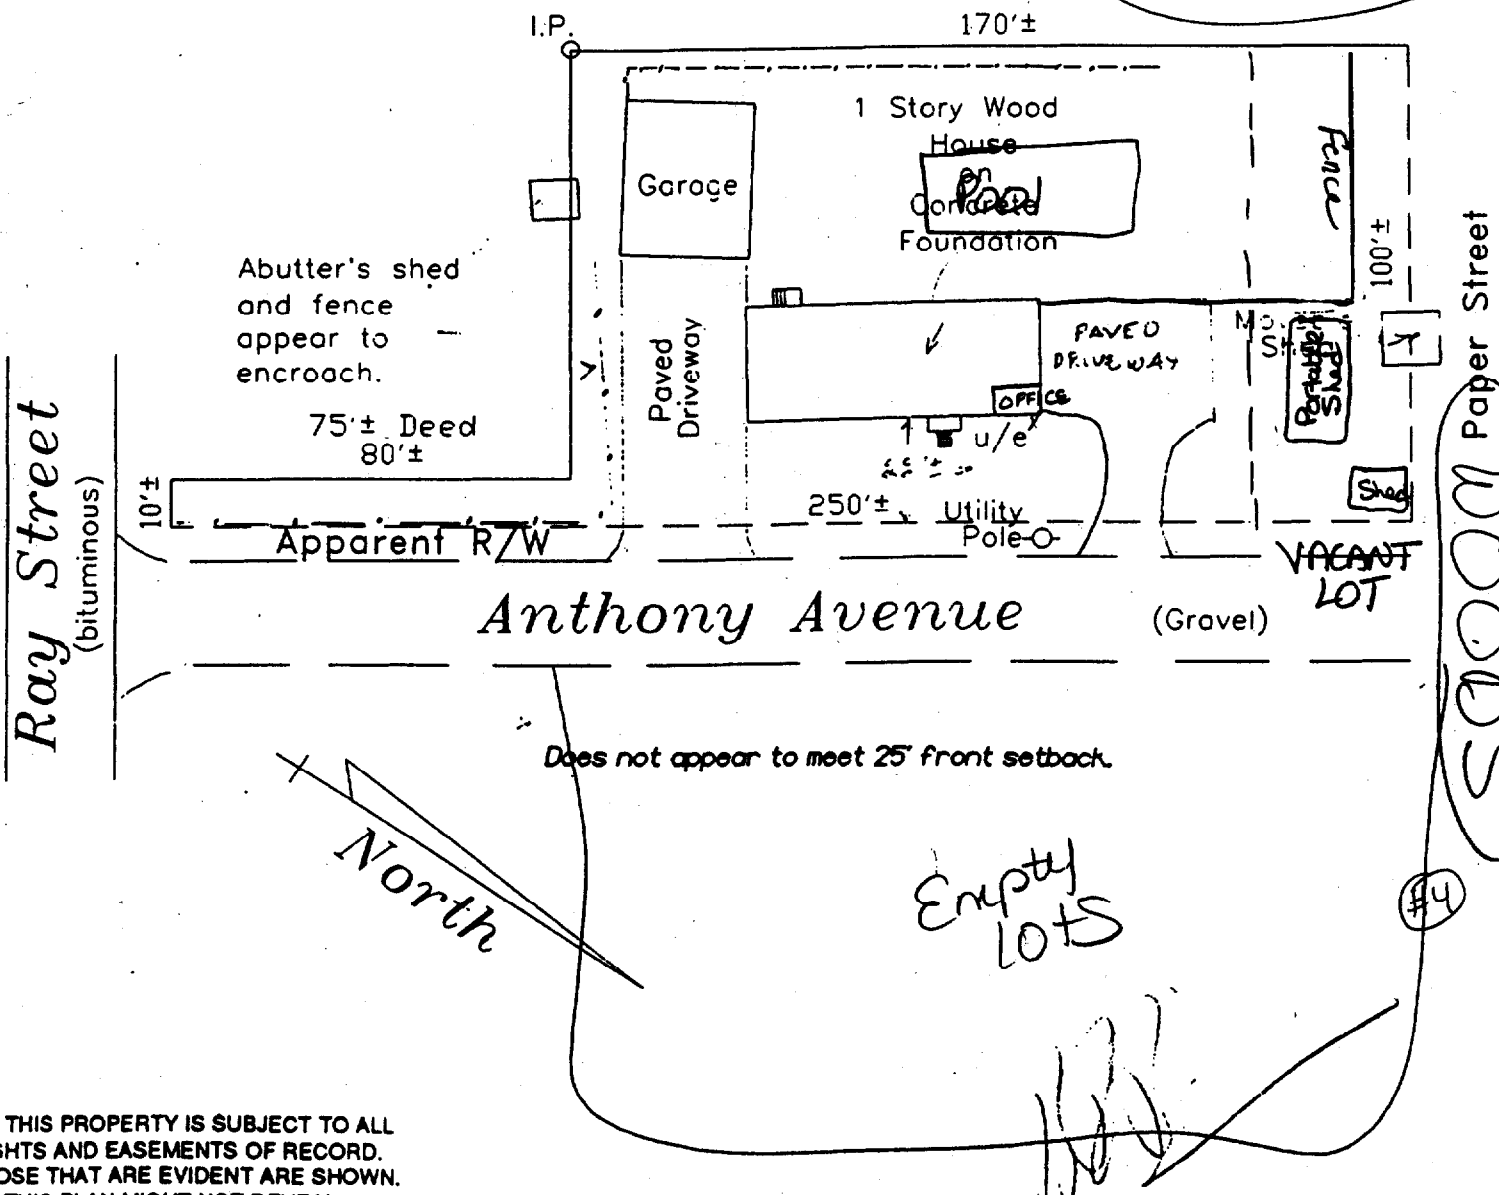 I.P.
170'±
1 Story Wood
House
on
Concrete
Foundation
Pool
Garage
Fence
100'±
Paper Street
Abutter's shed
and fence
appear to
encroach.
Paved
Driveway
PAVED
DRIVEWAY
OFFICE
Portable
Shed
Shed
1
u/e
75'± Deed
80'±
10'±
250'±
Utility
Pole
Apparent R/W
VACANT
LOT
Ray Street
(bituminous)
Anthony Avenue
(Gravel)
WOODS
Does not appear to meet 25' front setback.
North
Empty
LOTS
#4
THIS PROPERTY IS SUBJECT TO ALL
GHTS AND EASEMENTS OF RECORD.
OSE THAT ARE EVIDENT ARE SHOWN.
THIS PLAN MIGHT NOT REVEAL